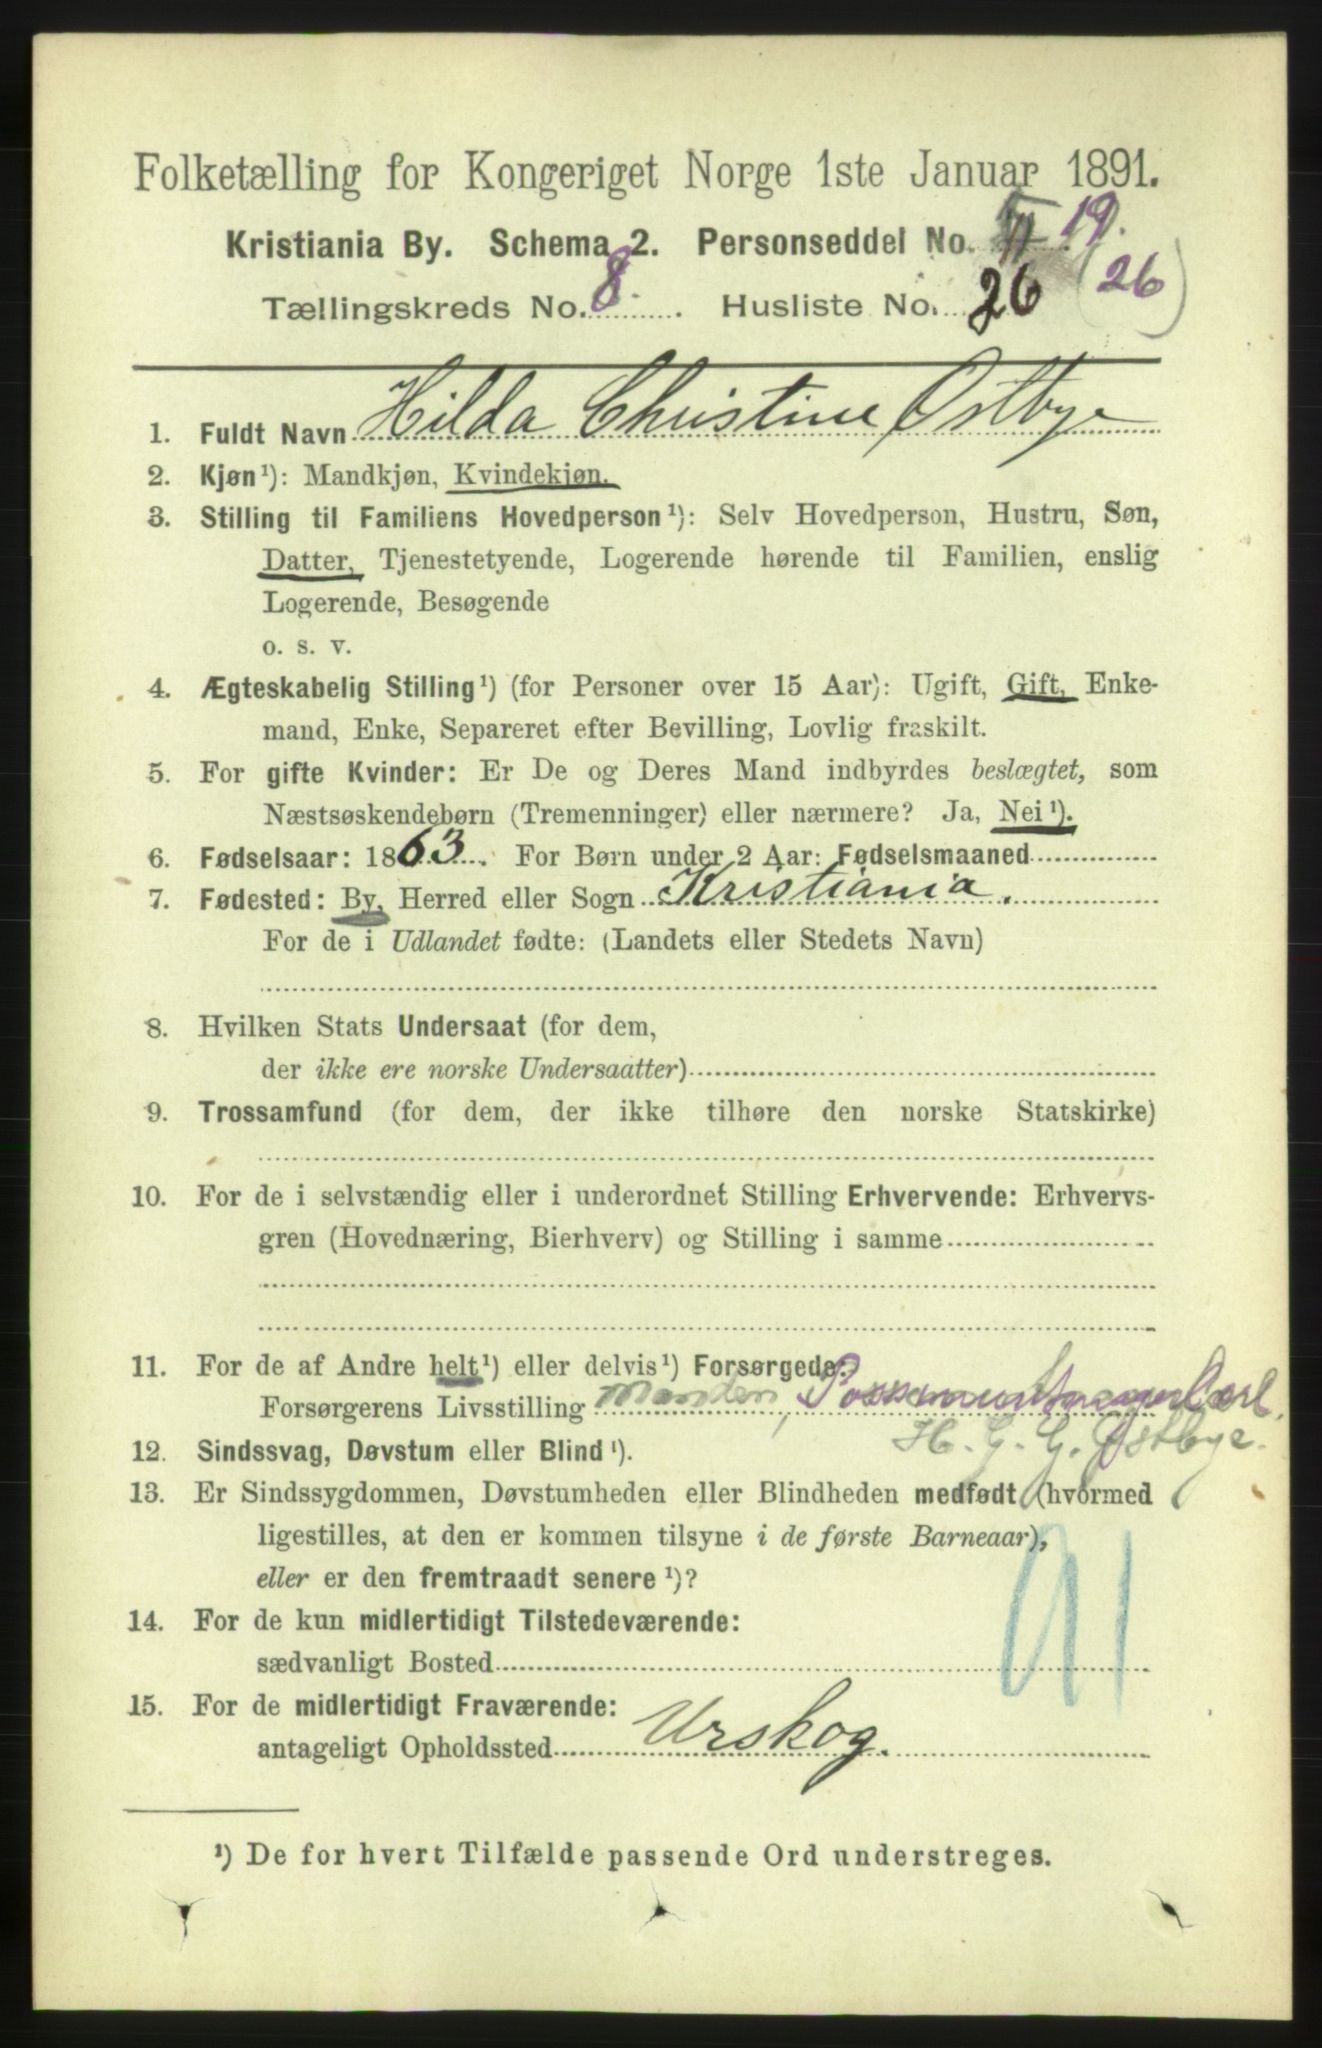 Folketælling for Kongeriget Norge 1ste Januar 1891.
Kristiania By. Schema 2. Personseddel No. 19.
Tællingskreds No. 8. Husliste No. 26 (26)
1. Fuldt Navn Hilda Christine Østbye
2. Kjøn¹): Mandkjøn, Kvindekjøn.
3. Stilling til Familiens Hovedperson¹): Selv Hovedperson, Hustru, Søn,
Datter, Tjenestetyende, Logerende hørende til Familien, enslig
Logerende, Besøgende
o. s. v.
4. Ægteskabelig Stilling¹) (for Personer over 15 Aar): Ugift, Gift, Enke-
mand, Enke, Separeret efter Bevilling, Lovlig fraskilt.
5. For gifte Kvinder: Er De og Deres Mand indbyrdes beslægtet, som
Næstsøskendebørn (Tremenninger) eller nærmere? Ja, Nei¹).
6. Fødselsaar: 1863. For Børn under 2 Aar: Fødselsmaaned
7. Fødested: By, Herred eller Sogn Kristiania.
For de i Udlandet fødte: (Landets eller Stedets Navn)
8. Hvilken Stats Undersaat (for dem,
der ikke ere norske Undersaatter)
9. Trossamfund (for dem, der ikke tilhøre den norske Statskirke)
10. For de i selvstændig eller i underordnet Stilling Erhvervende: Erhvervs-
gren (Hovednæring, Bierhverv) og Stilling i samme
11. For de af Andre helt¹) eller delvis¹) Forsørgede:
Forsørgerens Livsstilling Manden, Carl
H. G. G. Østbye.
12. Sindssvag, Døvstum eller Blind¹).
13. Er Sindssygdommen, Døvstumheden eller Blindheden medfødt (hvormed
ligestilles, at den er kommen tilsyne i de første Barneaar),
eller er den fremtraadt senere¹)?
14. For de kun midlertidigt Tilstedeværende:
sædvanligt Bosted
15. For de midlertidigt Fraværende:
antageligt Opholdssted Urskog.
¹) De for hvert Tilfælde passende Ord understreges.